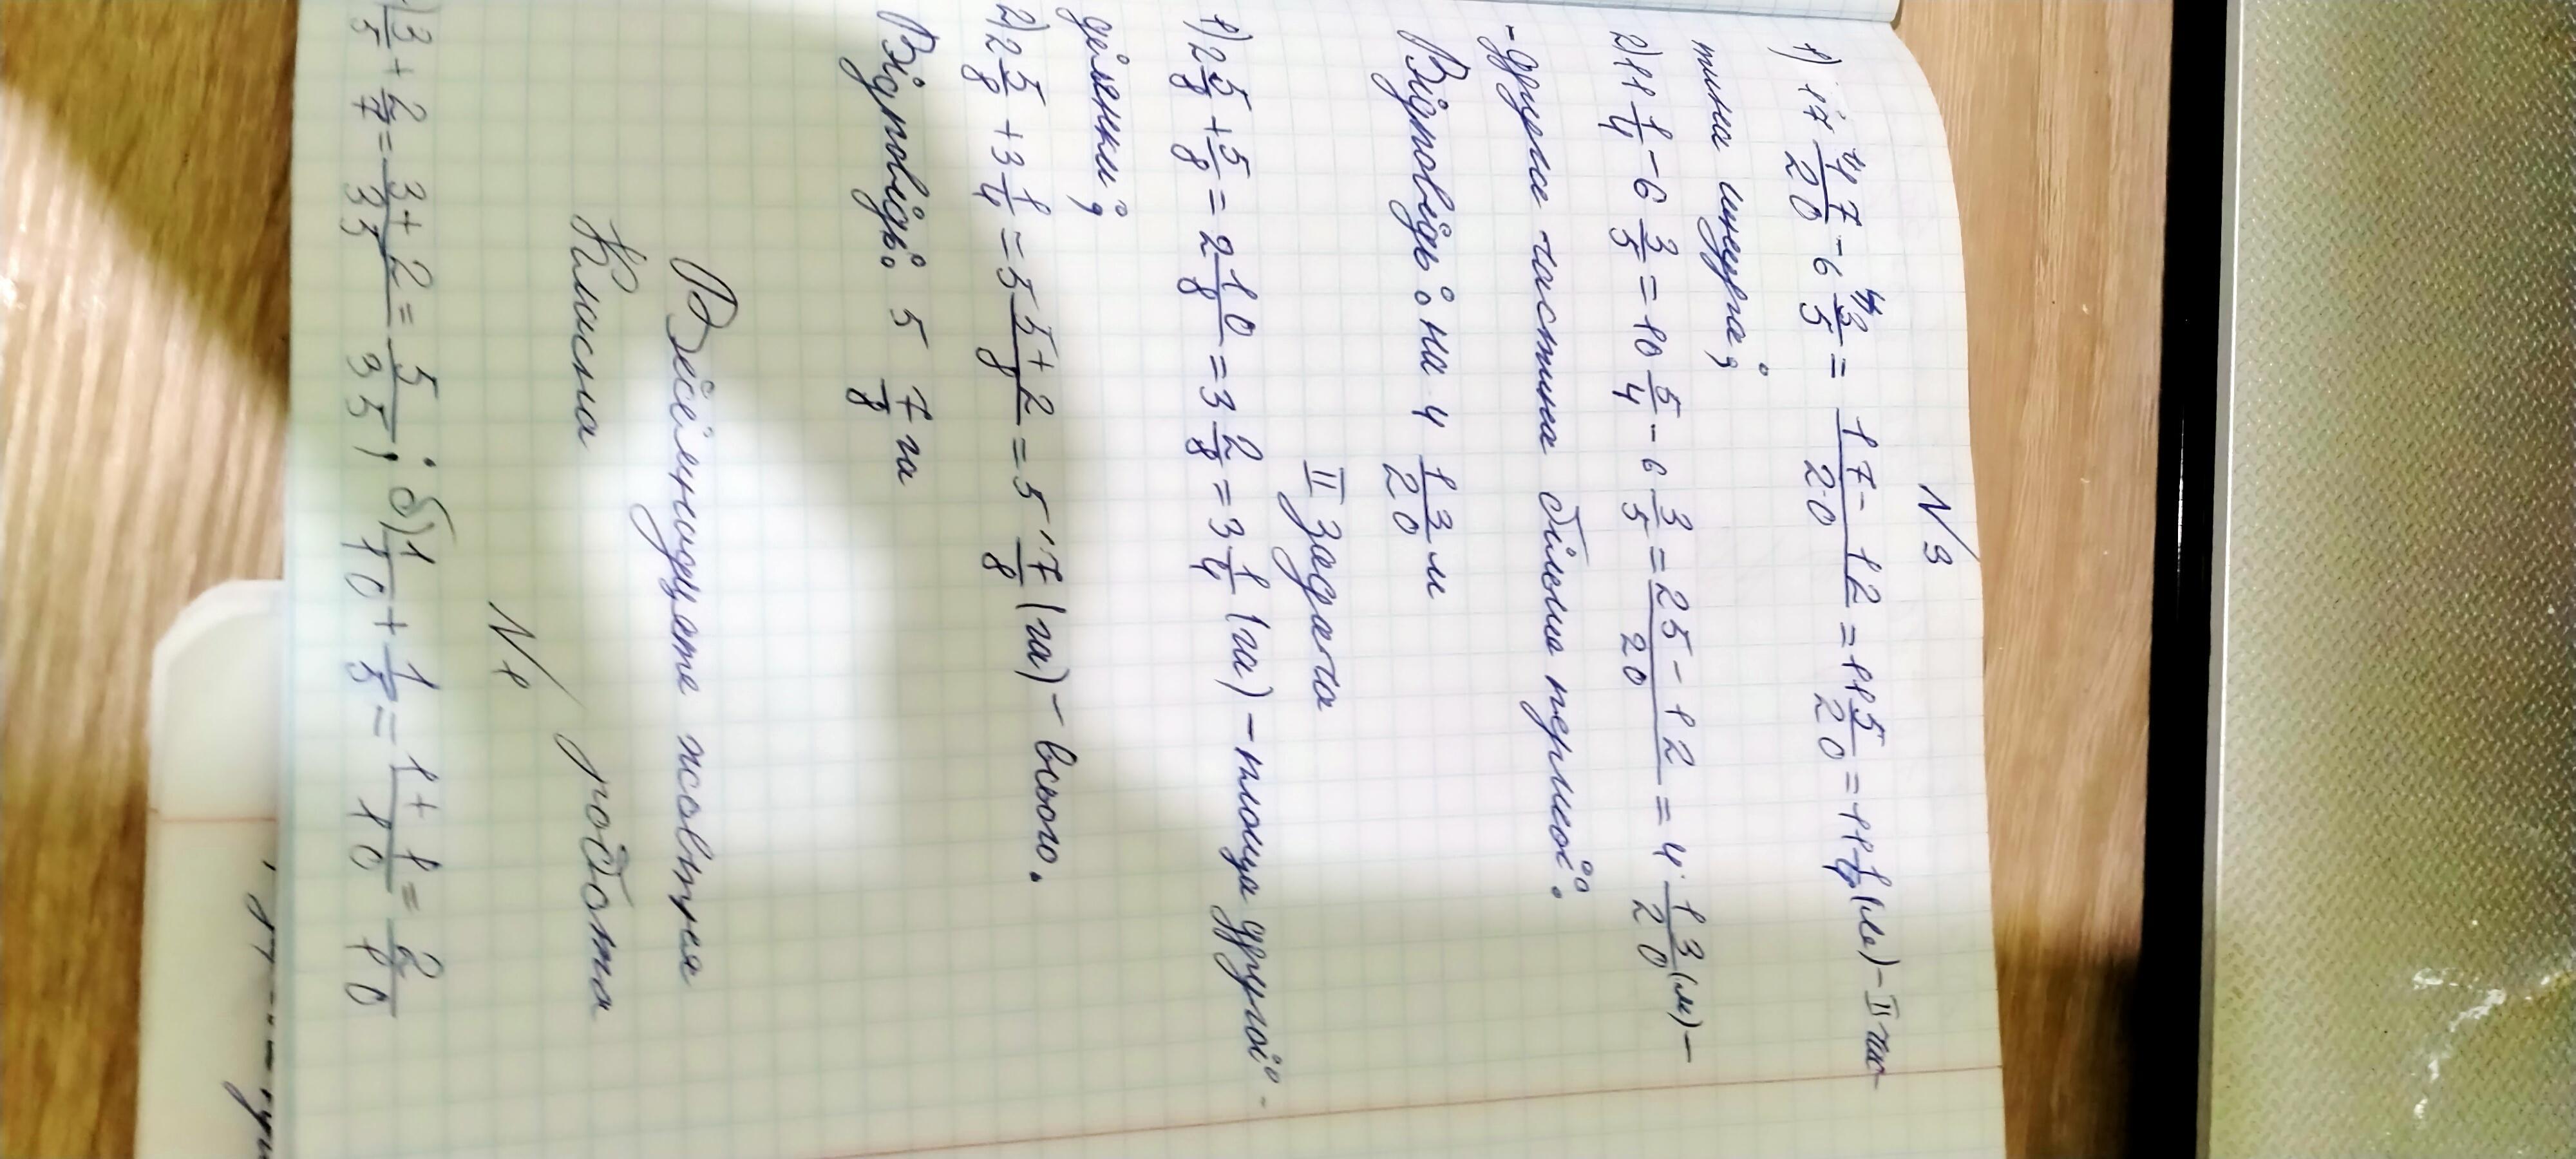 N 3
1) 17 17/20 - 6 3/5 = (17 - 12)/20 = 11 5/20 = 11 1/4 (м) - II час-
тина шнура;
2) 11 1/4 - 6 3/5 = 10 5/4 - 6 3/5 = (25 - 12)/20 = 4 13/20 (м) -
- друга частина більша першої.
Відповідь: на 4 13/20 м
II задача
1) 2 5/8 + 5/8 = 2 10/8 = 3 2/8 = 3 1/4 (га) - площа другої
ділянки;
2) 2 5/8 + 3 1/4 = 5 (5 + 2)/8 = 5 7/8 (га) - всього.
Відповідь: 5 7/8 га
Двадцяте жовтня
Класна робота
N 1
3/5 + 2/7 = (3 + 2)/35 = 5/35; б) 1/10 + 1/5 = (1 + 1)/10 = 2/10